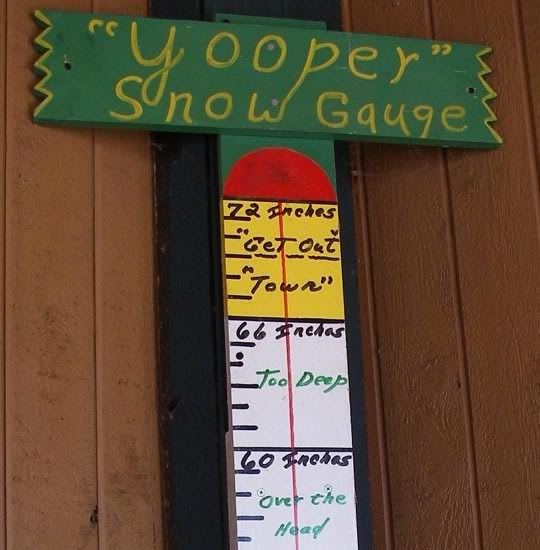 "Yooper"
Snow Gauge
72 Inches
"Get Out"
"Town"
66 Inches
Too Deep
60 Inches
Over the
Head